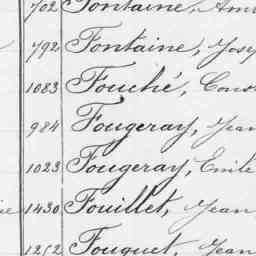 702 Fontaine,
792 Fontaine,
1083 Fouché,
984 Fougeray, Jean
1023 Fougeray, Emile
1430 Fouillet, Jean
1212 Fouquet, Jean